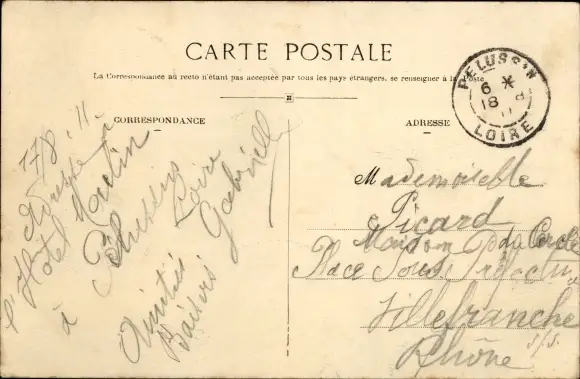 CARTE POSTALE
La Correspondance au recto n'étant pas acceptée par tous les pays étrangers, se renseigner à la Poste
CORRESPONDANCE
ADRESSE
PELUSSIN
6 *
18 8
11
LOIRE
17 8 11
Adresse à
l'Hôtel Martin
à Pélussin
Loire
Amitiés
Baisers Gabrielle
Mademoiselle
Picard
Maison du Cercle
Place Sous Préfecture
Villefranche
s/s.
Rhône